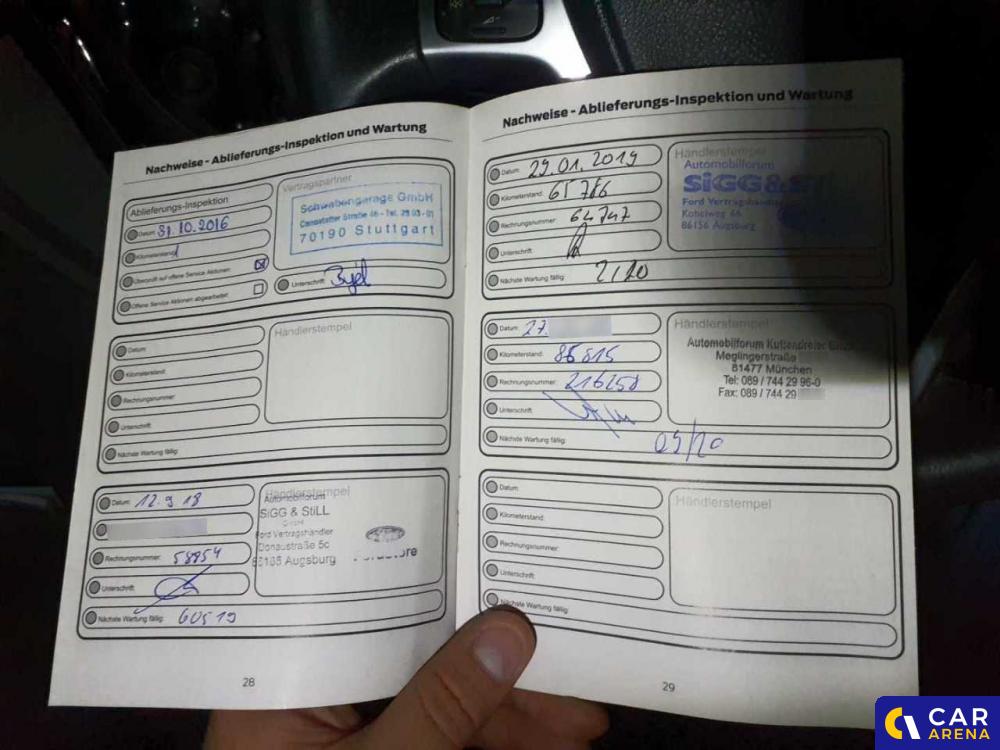 Nachweise - Ablieferungs-Inspektion und Wartung
Ablieferungs-Inspektion
Datum: 31.10.2016
Kilometerstand: 1
Überprüft auf offene Service Aktionen:
Offene Service Aktionen abgearbeitet:
Vertragspartner
Schwabengarage GmbH
Cannstatter Straße 46 - Tel. 28 03 - 01
70190 Stuttgart
Unterschrift:
Datum:
Kilometerstand:
Rechnungsnummer:
Unterschrift:
Nächste Wartung fällig:
Händlerstempel
Datum: 12.9.18
Rechnungsnummer: 58854
Unterschrift:
Nächste Wartung fällig:
Händlerstempel
Automobilforum
SiGG & STiLL
GmbH
Ford Vertragshändler
Donaustraße 5c
86165 Augsburg
28
Nachweise - Ablieferungs-Inspektion und Wartung
Datum: 29.01.2019
Kilometerstand: 65786
Rechnungsnummer: 64747
Unterschrift:
Nächste Wartung fällig: 2/20
Händlerstempel
Automobilforum
SiGG &
Ford Vertragshändler
Kobelweg 66
86156 Augsburg
Datum: 27.
Kilometerstand: 86815
Rechnungsnummer: 216258
Unterschrift:
Nächste Wartung fällig: 09/20
Händlerstempel
Automobilforum Kuttendreier
Meglingerstraße
81477 München
Tel: 089 / 744 29 96-0
Fax: 089 / 744 29
Datum:
Kilometerstand:
Rechnungsnummer:
Unterschrift:
Nächste Wartung fällig:
Händlerstempel
29
CAR
ARENA